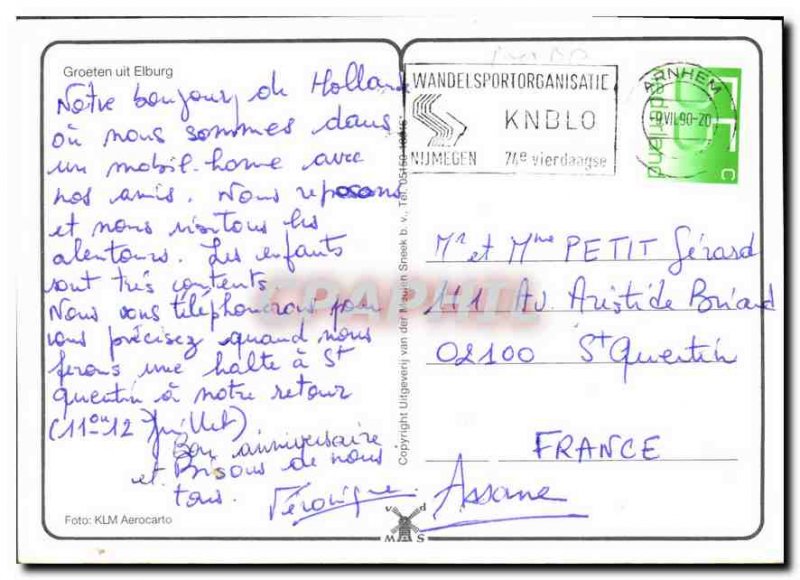 Groeten uit Elburg
Notre bonjour de Hollande
où nous sommes dans
un mobil-home avec
nos amis. Nous reposons
et nous visitons les
alentours. Les enfants
sont très contents
Nous vous téléphonerons pour
vous précisez quand nous
ferons une halte à St
Quentin à notre retour
(11 ou 12 Juillet)
Bon anniversaire
et Bisous de nous
tous. Véronique Assane
Foto: KLM Aerocarto
Copyright Uitgeverij van der Meulen Sneek b.v., Tel.
v d
M S
WANDELSPORTORGANISATIE
KNBLO
NIJMEGEN 74e vierdaagse
ARNHEM
-9.VII.90-20
nederland
c
Mr et Mme PETIT Gérard
111 Av Aristide Briand
02100 St Quentin
FRANCE
CPAPHIL